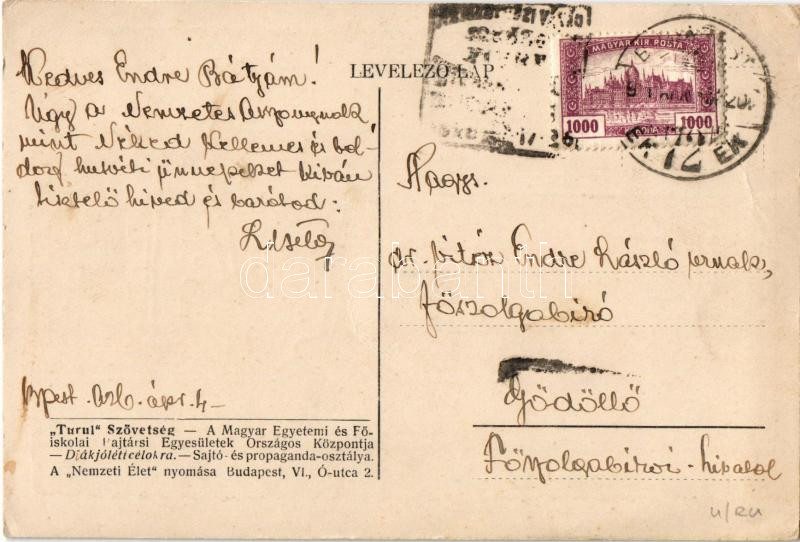 Kedves Endre Bátyám!
Úgy a Nemzetes Asszonynak
mint Néked kellemes és bol-
dog husvéti ünnepeket kiván
tisztelő hived és barátod:
Bpest. 926. ápr. 4-
„Turul“ Szövetség — A Magyar Egyetemi és Fő-
iskolai Bajtársi Egyesületek Országos Központja
— Diákjóléti célokra. — Sajtó- és propaganda-osztálya.
A „Nemzeti Élet“ nyomása Budapest, VI., Ó-utca 2.
LEVELEZŐ-LAP
MAGYAR KIR. POSTA
1000 1000
Nagys.
dr. vitéz Endre László urnak,
főszolgabiró
Gödöllő
Főszolgabirói-hivatal
darabanth